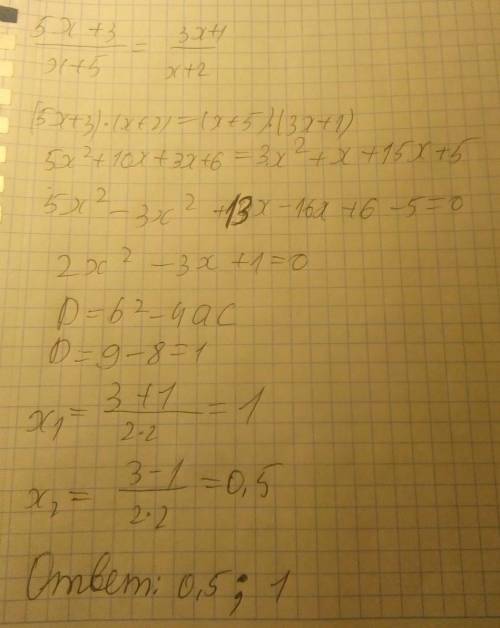 5x+3 / x+5 = 3x+1 / x+2
(5x+3)·(x+2)=(x+5)·(3x+1)
5x²+10x+3x+6=3x²+x+15x+5
5x²-3x²+13x-16x+6-5=0
2x²-3x+1=0
D=b²-4ac
D=9-8=1
x₁= 3+1 / 2·2 =1
x₂= 3-1 / 2·2 =0,5
Ответ: 0,5; 1